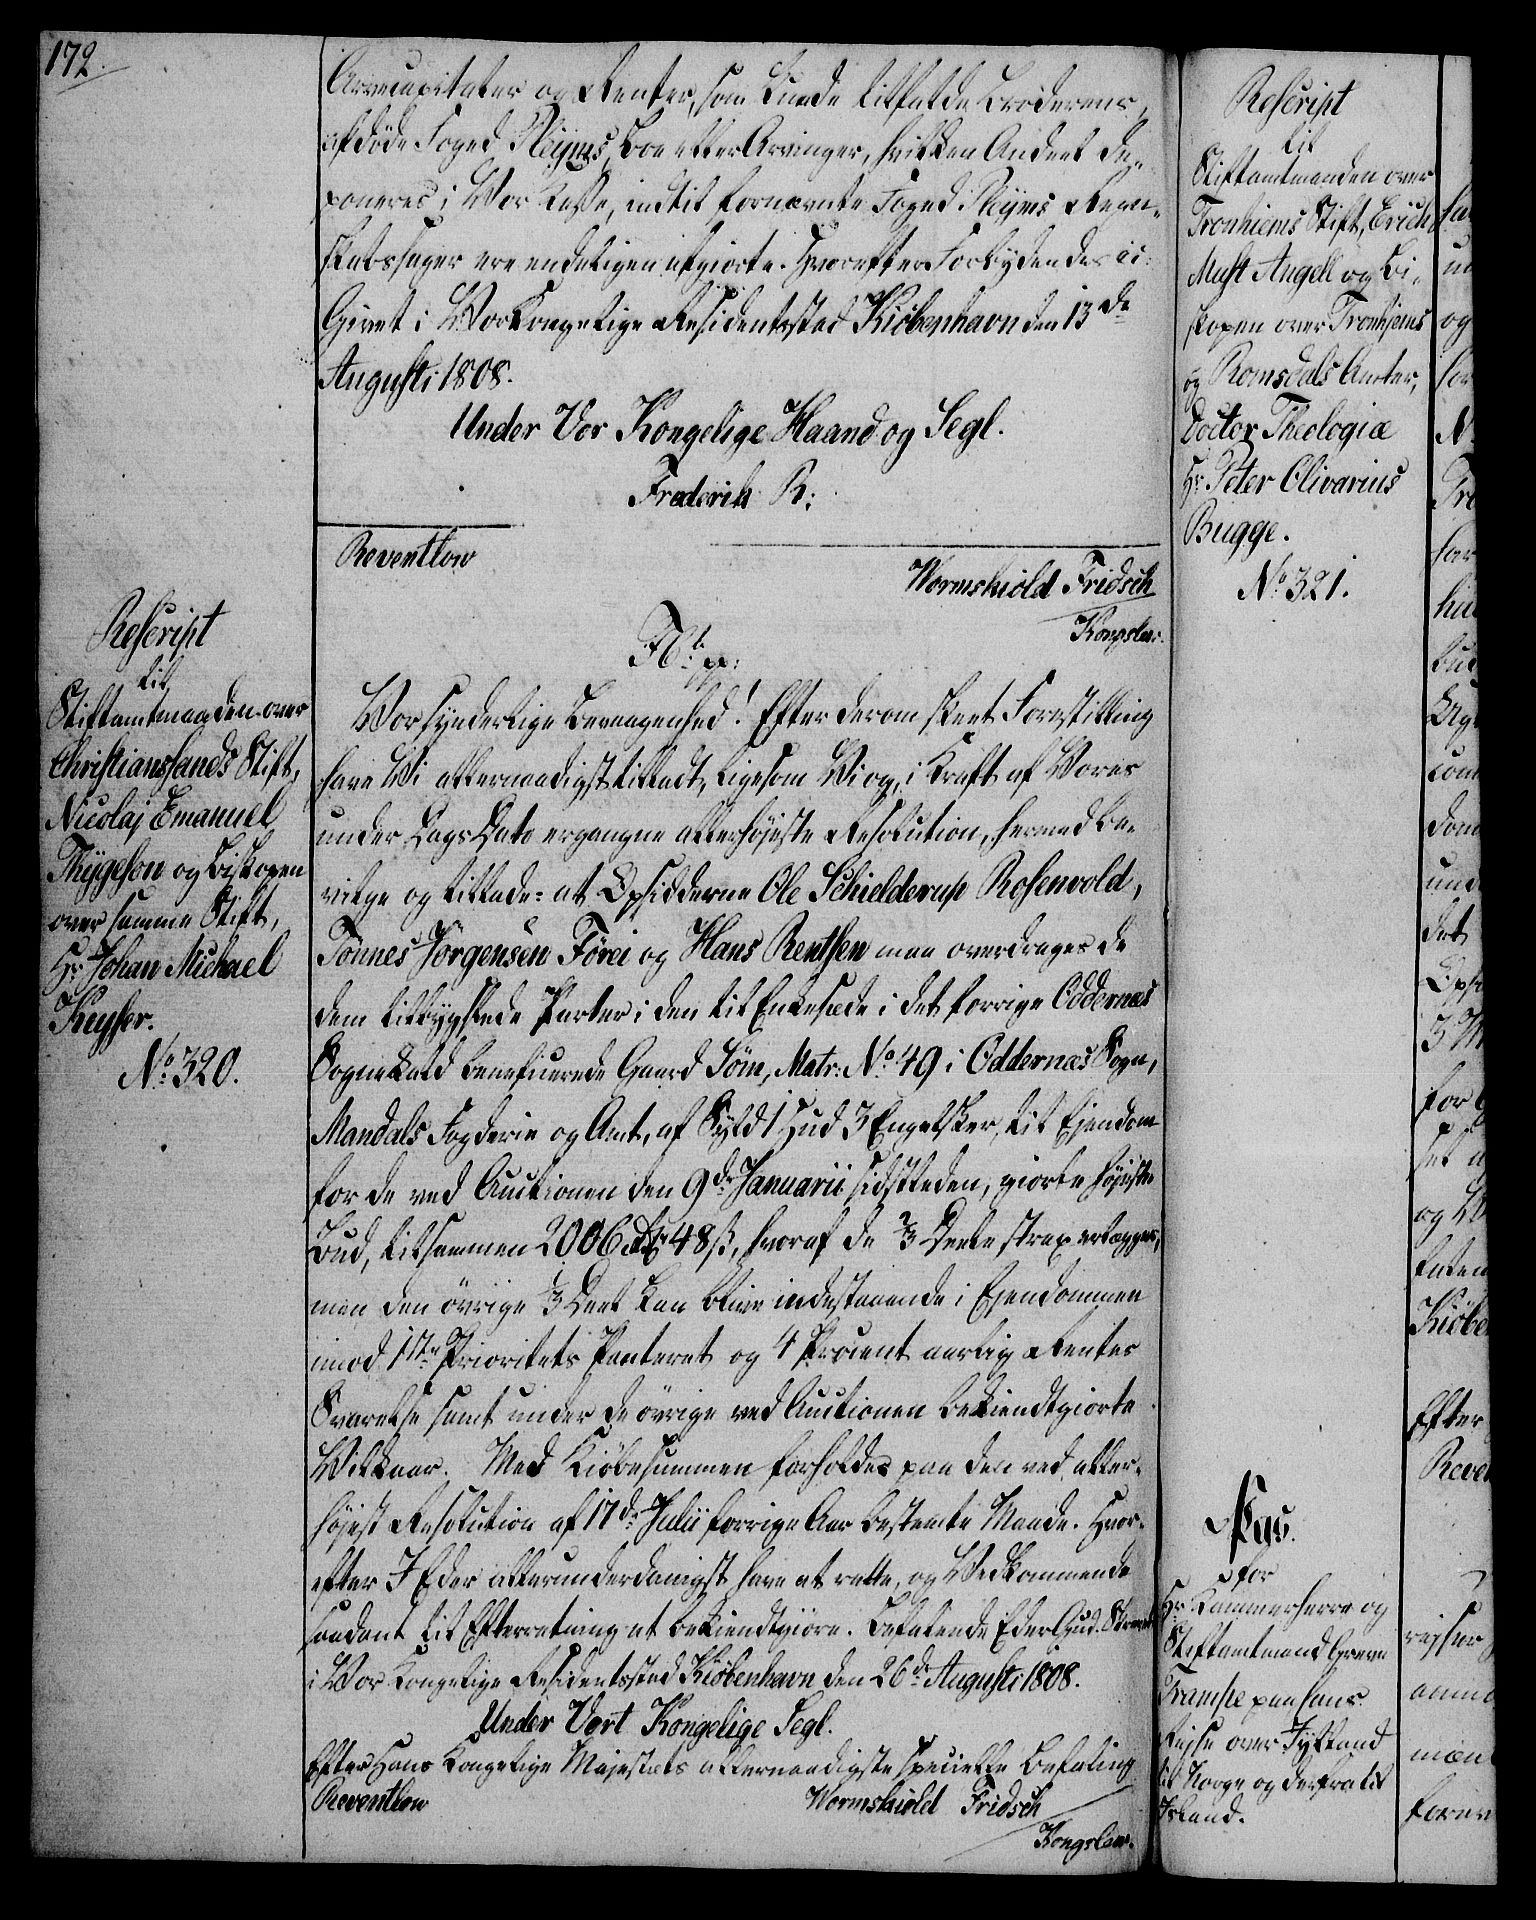 172.
Arvecapitaler og Renter, som kunde tilfalde Broderens,
afdöde Foged Kleyms, Boe eller Arvinger, hvilken Andeel de-
poneres i Vor Kasse, indtil fornævnte Foged Kleyms Regn-
skabssager ere endeligen afgiorte. Hvorefter Forbydendes cc:
Givet i Vor Kongelige Residentsstad Kiöbenhavn den 13de
Augusti 1808.
Under Vor Kongelige Haand og Segl.
Frederik R:
Reventlow
Wormskiold Fridsch
Kongslew.
Rescript
til
Stiftamtmanden over
Christianssands Stift,
Nicolaj Emanuel
Thygeson og Biskopen
over samme Stift,
Hr Johan Michael
Keyser.
No 320.
Fr. 6. pp:
Vor synderlige Bevaagenhed! Efter derom skeet Forestilling
have Vi allernaadigst tilladt, ligesom Vi og, i Kraft af Vores
under Dags Dato ergangne allerhöjeste Resolution, hermed be-
vilge og tillade: at Opsidderne Ole Schielderup Rosenvold,
Tönnes Jörgensen Förei og Hans Renthsen maa overdrages de
dem tilbygslede Parter i den til Enkesæde i det forrige Oddernæs
Sognekald beneficerede Gaard Söm, Matr: No 49 i Oddernæs Sogn,
Mandals Fogderie og Amt, af Skyld 1 Hud 3 Engelsker, til Ejendom
for de ved Auctionen den 9de Januarii sidstleden, giorte höjeste
Bud, tilsammen 2006 Rdr 48 ß, hvoraf de 2/3 Deele strax erlægges,
men den övrige 1/3 Deel kan blive indestaaende i Ejendommen
imod 1ste Prioritets Panteret og 4 Procent aarlig Rentes
Svarelse samt under de övrige ved Auctionen bekiendtgiorte
Vilkaar. Med Kiöbesummen forholdes paa den ved aller-
höjest Resolution af 17de Julii forrige Aar bestemte Maade. Hvor-
efter I Eder allerunderdanigst have at rette, og Vedkommende
saadant til Efterretning at bekiendtgiöre. Befalende Eder Gud. Skrevet
i Vor Kongelige Residentsstad Kiöbenhavn den 26de Augusti 1808.
Under Vort Kongelige Segl.
Efter Hans Kongelige Majestæts allernaadigste specielle Befaling
Reventlow
Wormskiold Fridsch
Kongslew.
Rescript
til
Stiftamtmanden over
Tronhiems Stift, Erich
Must Angell og Bi-
skopen over Tronhiems
og Romsdals Amter,
Doctor Theologiæ
Hr Peter Olivarius
Bugge.
No 321.
Pas.
for
Hr Kammerherre og
Stiftamtmand Greve
Trampe paa hans
Rejse over Jylland
til Norge og derfra til
Island.
og
for
No
Tro
hu
com
dom
und
det
Opsi
3 M
for
og V
Kiöbe
Efter
Reven